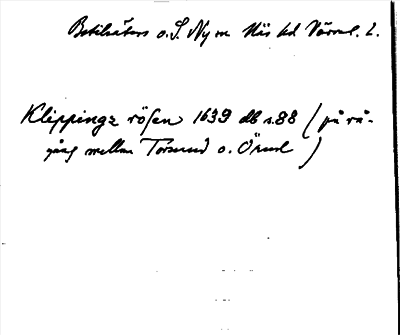 Botilsäters o. S. Ny m Näs hd Värml. l.
Klippingz rösen 1639 db s. 88 (på rå-
gång mellan Torsrud o. Ömul)